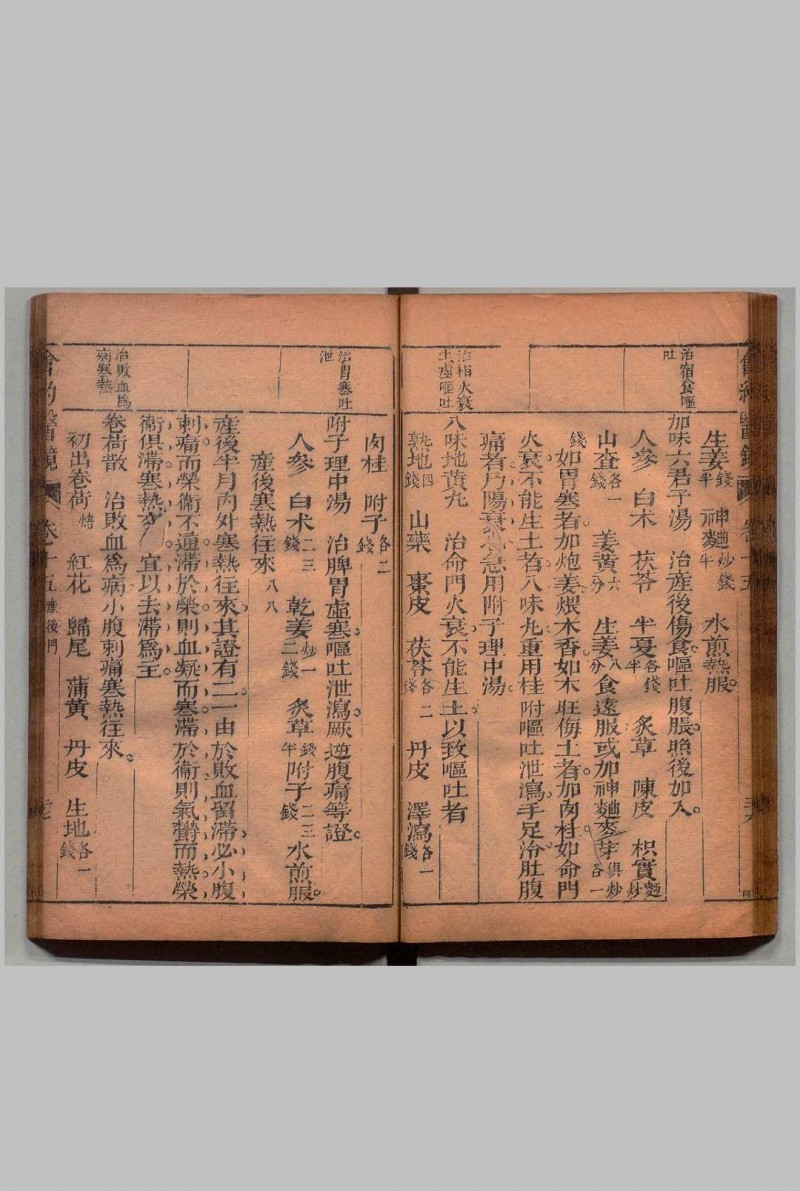 治宿食嘔
吐
治相火衰
生瘧嘔吐
生姜錢半　神麯炒錢半　水煎熱服。
加味六君子湯　治產後傷食。嘔吐腹脹。照後加入。
人參　白朮　茯苓　半夏各錢半　炙草　陳皮　枳實麵炒
山查各一錢　姜黃六分　生姜八分　食遠服或加神麯麥芽俱炒各一
錢如胃寒者加炮姜煨木香。如木旺侮土者。加肉桂。如命門
火衰。不能生土者。八味丸重用桂附。嘔吐泄瀉。手足冷。肚腹
痛者。乃陽衰。急用附子理中湯。
八味地黃丸　治命門火衰。不能生土。以致嘔吐者
熟地四錢　山藥　棗皮　茯苓各二錢　丹皮　澤瀉各一錢
治胃寒吐
泄
治敗血爲
病寒熱
肉桂　附子各二錢
附子理中湯　治脾胃虛寒。嘔吐泄瀉。厥逆腹痛等證。
人參　白朮二三錢　乾姜炒一二錢　炙草錢半　附子二三錢　水煎服。
產後寒熱往來　八八
產後半月內外寒熱往來。其證有二。一由於敗血留滯。必小腹
刺痛。而榮衛不通。滯於榮則血凝而寒。滯於衛則氣鬱而熱。榮
衛俱滯。寒熱　宜以去滯爲主。
卷荷散　治敗血爲病。小腹刺痛。寒熱往來。
初出卷荷焙　紅花　歸尾　蒲黃　丹皮　生地各一錢
會約醫鏡　卷十五　產後門